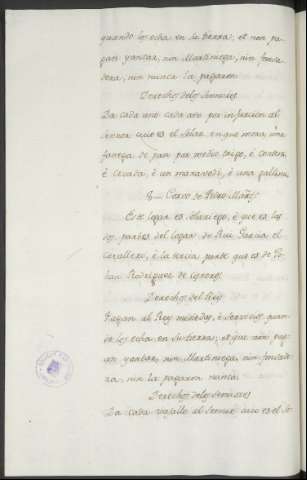 quando los echa en su tierra, et non pa-
gan yantar, nin Martiniega, nin fonsa-
dera, nin nunca la pagaron
Derechos delos Sennores
Da cada uno cada año por infurcion al
Sennor cuio es el Solar, en que mora, una
fanega de pan por medio trigo, è centeno,
è cevada, è un maravedi, è una gallina
Covo de Pedro Mañz
Este logar es Abadengo, è que es la
dos partes del logar de Rui Garcia el
Cavallero, è la tercia parte que es de Jo-
han Rodriguez de
Derechos del Rey
Pagan al Rey monedas, è Servicios quan-
do los echa en su tierra, et que non pa-
gan yantar, nin Martiniega, nin fonsade-
ra, nin la pagaron nunca
Derechos delos Sennores
Da cada vasallo al Sennor cuio es el So-